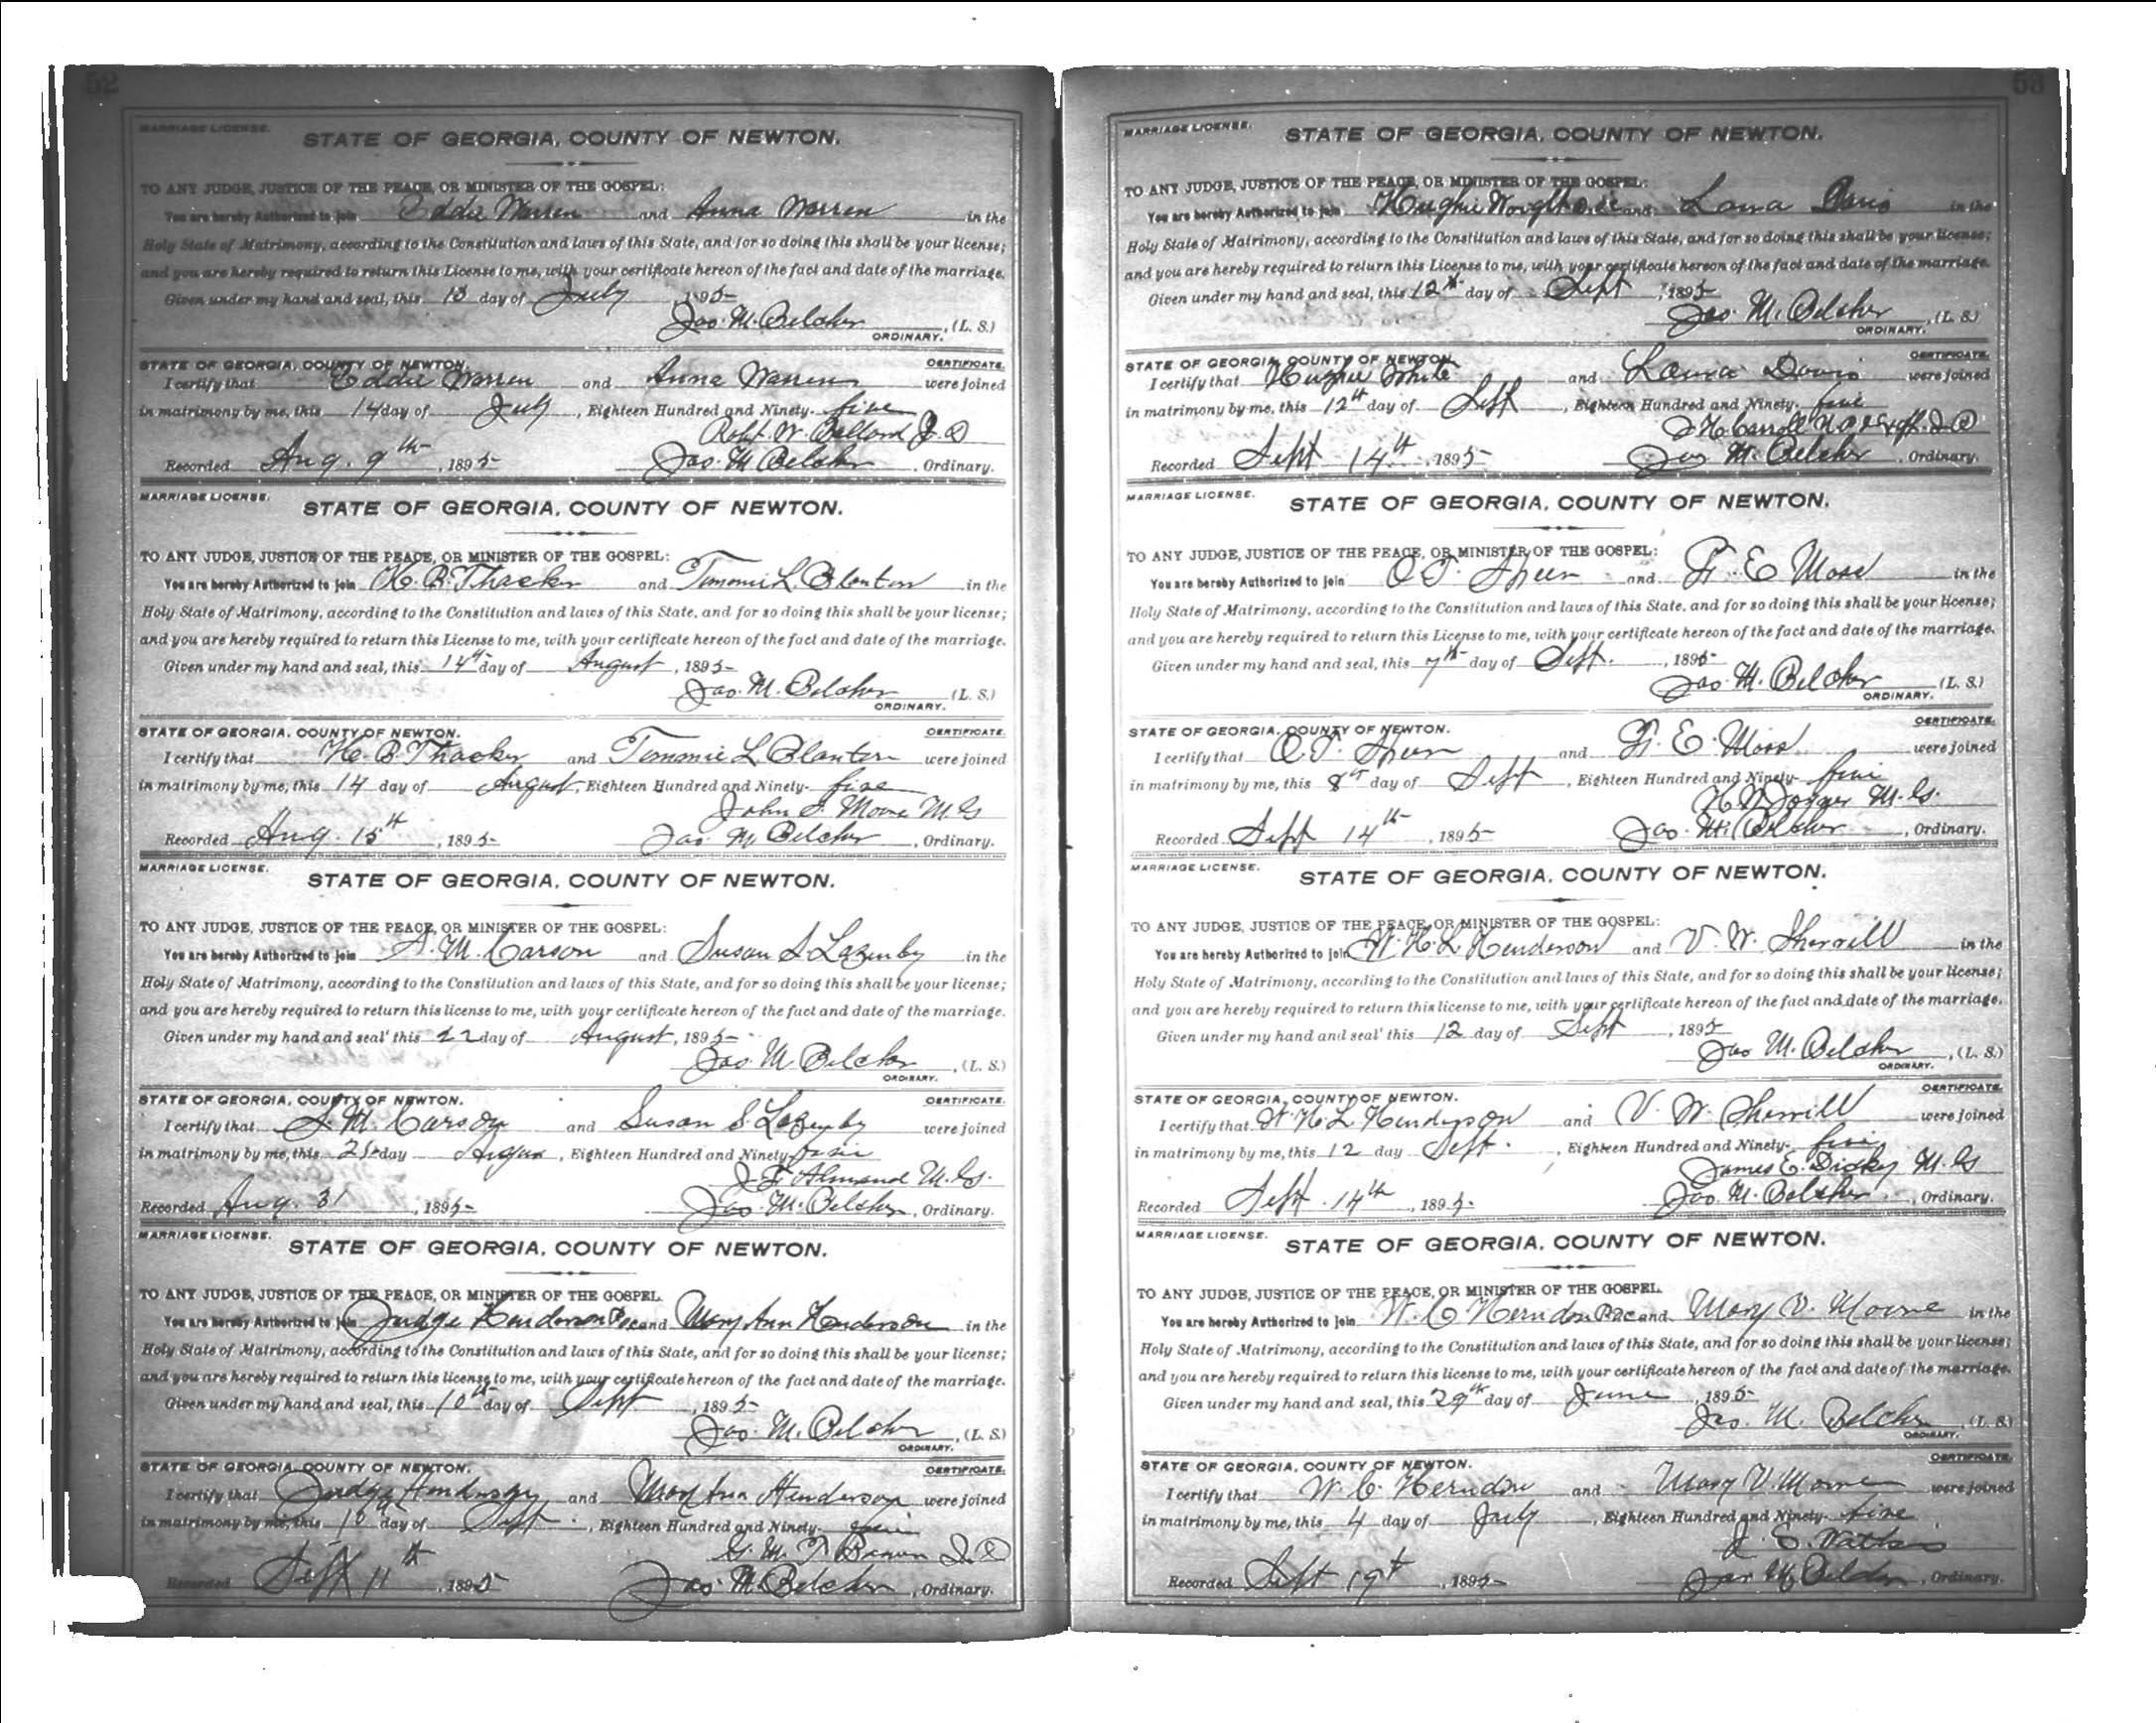 52
MARRIAGE LICENSE.
STATE OF GEORGIA, COUNTY OF NEWTON.
TO ANY JUDGE, JUSTICE OF THE PEACE, OR MINISTER OF THE GOSPEL:
You are hereby Authorized to join Eddie Warren and Anna Warren in the
Holy State of Matrimony, according to the Constitution and laws of this State, and for so doing this shall be your license;
and you are hereby required to return this License to me, with your certificate hereon of the fact and date of the marriage.
Given under my hand and seal, this 13 day of July 1895
Jas. M. Belcher, (L. S.)
ORDINARY.
STATE OF GEORGIA, COUNTY OF NEWTON. CERTIFICATE.
I certify that Eddie Warren and Anna Warren were joined
in matrimony by me, this 14 day of July, Eighteen Hundred and Ninety-five
Robt. W. J. P
Recorded Aug. 9th, 1895 Jas. M Belcher, Ordinary.
MARRIAGE LICENSE.
STATE OF GEORGIA, COUNTY OF NEWTON.
TO ANY JUDGE, JUSTICE OF THE PEACE, OR MINISTER OF THE GOSPEL:
You are hereby Authorized to join H. B. Thacker and Tommie L. Blanton in the
Holy State of Matrimony, according to the Constitution and laws of this State, and for so doing this shall be your license;
and you are hereby required to return this License to me, with your certificate hereon of the fact and date of the marriage.
Given under my hand and seal, this 14th day of August, 1895
Jas. M. Belcher (L. S.)
ORDINARY.
STATE OF GEORGIA, COUNTY OF NEWTON. CERTIFICATE.
I certify that H. B. Thacker and Tommie L Blanton were joined
in matrimony by me, this 14 day of August, Eighteen Hundred and Ninety-five
John S. Moore M. G
Recorded Aug. 15th, 1895 Jas. M Belcher, Ordinary.
MARRIAGE LICENSE.
STATE OF GEORGIA, COUNTY OF NEWTON.
TO ANY JUDGE, JUSTICE OF THE PEACE, OR MINISTER OF THE GOSPEL:
You are hereby Authorized to join S. M. Carson and Susan S. Lazenby in the
Holy State of Matrimony, according to the Constitution and laws of this State, and for so doing this shall be your license;
and you are hereby required to return this license to me, with your certificate hereon of the fact and date of the marriage.
Given under my hand and seal' this 22 day of August, 1895
Jas M. Belcher, (L. S.)
ORDINARY.
STATE OF GEORGIA, COUNTY OF NEWTON. CERTIFICATE.
I certify that S. M. Carson and Susan S. Lazenby were joined
in matrimony by me, this day August, Eighteen Hundred and Ninety-five
J. F. Almand M. G.
Recorded Aug. 31, 1895 Jas. M. Belcher, Ordinary.
MARRIAGE LICENSE.
STATE OF GEORGIA, COUNTY OF NEWTON.
TO ANY JUDGE, JUSTICE OF THE PEACE, OR MINISTER OF THE GOSPEL.
You are hereby Authorized to join Judge Henderson and Mary Ann Henderson in the
Holy State of Matrimony, according to the Constitution and laws of this State, and for so doing this shall be your license;
and you are hereby required to return this license to me, with your certificate hereon of the fact and date of the marriage.
Given under my hand and seal, this 10th day of Sept, 1895
Jas. M. Belcher, (L. S.)
ORDINARY.
STATE OF GEORGIA, COUNTY OF NEWTON. CERTIFICATE.
I certify that Judge Henderson and Mary Ann Henderson were joined
in matrimony by me, this 10th day of Sept., Eighteen Hundred and Ninety-five
G. M. T. Brown J. P
Recorded Sept 11th, 1895 Jas M. Belcher, Ordinary.
53
MARRIAGE LICENSE.
STATE OF GEORGIA, COUNTY OF NEWTON.
TO ANY JUDGE, JUSTICE OF THE PEACE, OR MINISTER OF THE GOSPEL:
You are hereby Authorized to join Hughie and Davis in the
Holy State of Matrimony, according to the Constitution and laws of this State, and for so doing this shall be your license;
and you are hereby required to return this License to me, with your certificate hereon of the fact and date of the marriage.
Given under my hand and seal, this 12th day of Sept, 1895
Jas. M. Belcher, (L. S.)
ORDINARY.
STATE OF GEORGIA, COUNTY OF NEWTON. CERTIFICATE.
I certify that Hughie White and Davis were joined
in matrimony by me, this 12th day of Sept, Eighteen Hundred and Ninety-five
Carroll N. P. & Ex off. J P
Recorded Sept 14th, 1895 Jas M. Belcher, Ordinary.
MARRIAGE LICENSE.
STATE OF GEORGIA, COUNTY OF NEWTON.
TO ANY JUDGE, JUSTICE OF THE PEACE, OR MINISTER OF THE GOSPEL:
You are hereby Authorized to join O. T. and E Moss in the
Holy State of Matrimony, according to the Constitution and laws of this State, and for so doing this shall be your license;
and you are hereby required to return this License to me, with your certificate hereon of the fact and date of the marriage.
Given under my hand and seal, this 7th day of Sept., 1895
Jas. M. Belcher (L. S.)
ORDINARY.
STATE OF GEORGIA, COUNTY OF NEWTON. CERTIFICATE.
I certify that O. T. and E. Moss were joined
in matrimony by me, this 8th day of Sept, Eighteen Hundred and Ninety-five
M. G.
Recorded Sept 14th, 1895 Jas. M. Belcher, Ordinary.
MARRIAGE LICENSE.
STATE OF GEORGIA, COUNTY OF NEWTON.
TO ANY JUDGE, JUSTICE OF THE PEACE, OR MINISTER OF THE GOSPEL:
You are hereby Authorized to join W. H. L Henderson and V. W. Sherrill in the
Holy State of Matrimony, according to the Constitution and laws of this State, and for so doing this shall be your license;
and you are hereby required to return this license to me, with your certificate hereon of the fact and date of the marriage.
Given under my hand and seal' this 12 day of Sept, 1895
Jas M. Belcher, (L. S.)
ORDINARY.
STATE OF GEORGIA, COUNTY OF NEWTON. CERTIFICATE.
I certify that W. H. L Henderson and V. W. Sherrill were joined
in matrimony by me, this 12 day Sept., Eighteen Hundred and Ninety-five
James E. Dickey M. G
Recorded Sept. 14th, 1895 Jas. M. Belcher, Ordinary.
MARRIAGE LICENSE.
STATE OF GEORGIA, COUNTY OF NEWTON.
TO ANY JUDGE, JUSTICE OF THE PEACE, OR MINISTER OF THE GOSPEL.
You are hereby Authorized to join W. C Herndon and Mary V. Moore in the
Holy State of Matrimony, according to the Constitution and laws of this State, and for so doing this shall be your license;
and you are hereby required to return this license to me, with your certificate hereon of the fact and date of the marriage.
Given under my hand and seal, this 29th day of June, 1895
Jas. M. Belcher, (L. S)
ORDINARY.
STATE OF GEORGIA, COUNTY OF NEWTON. CERTIFICATE.
I certify that W. C. Herndon and Mary V. Moore were joined
in matrimony by me, this 4 day of July, Eighteen Hundred and Ninety-five
J. S.
Recorded Sept 19th, 1895 Jas M Belcher, Ordinary.